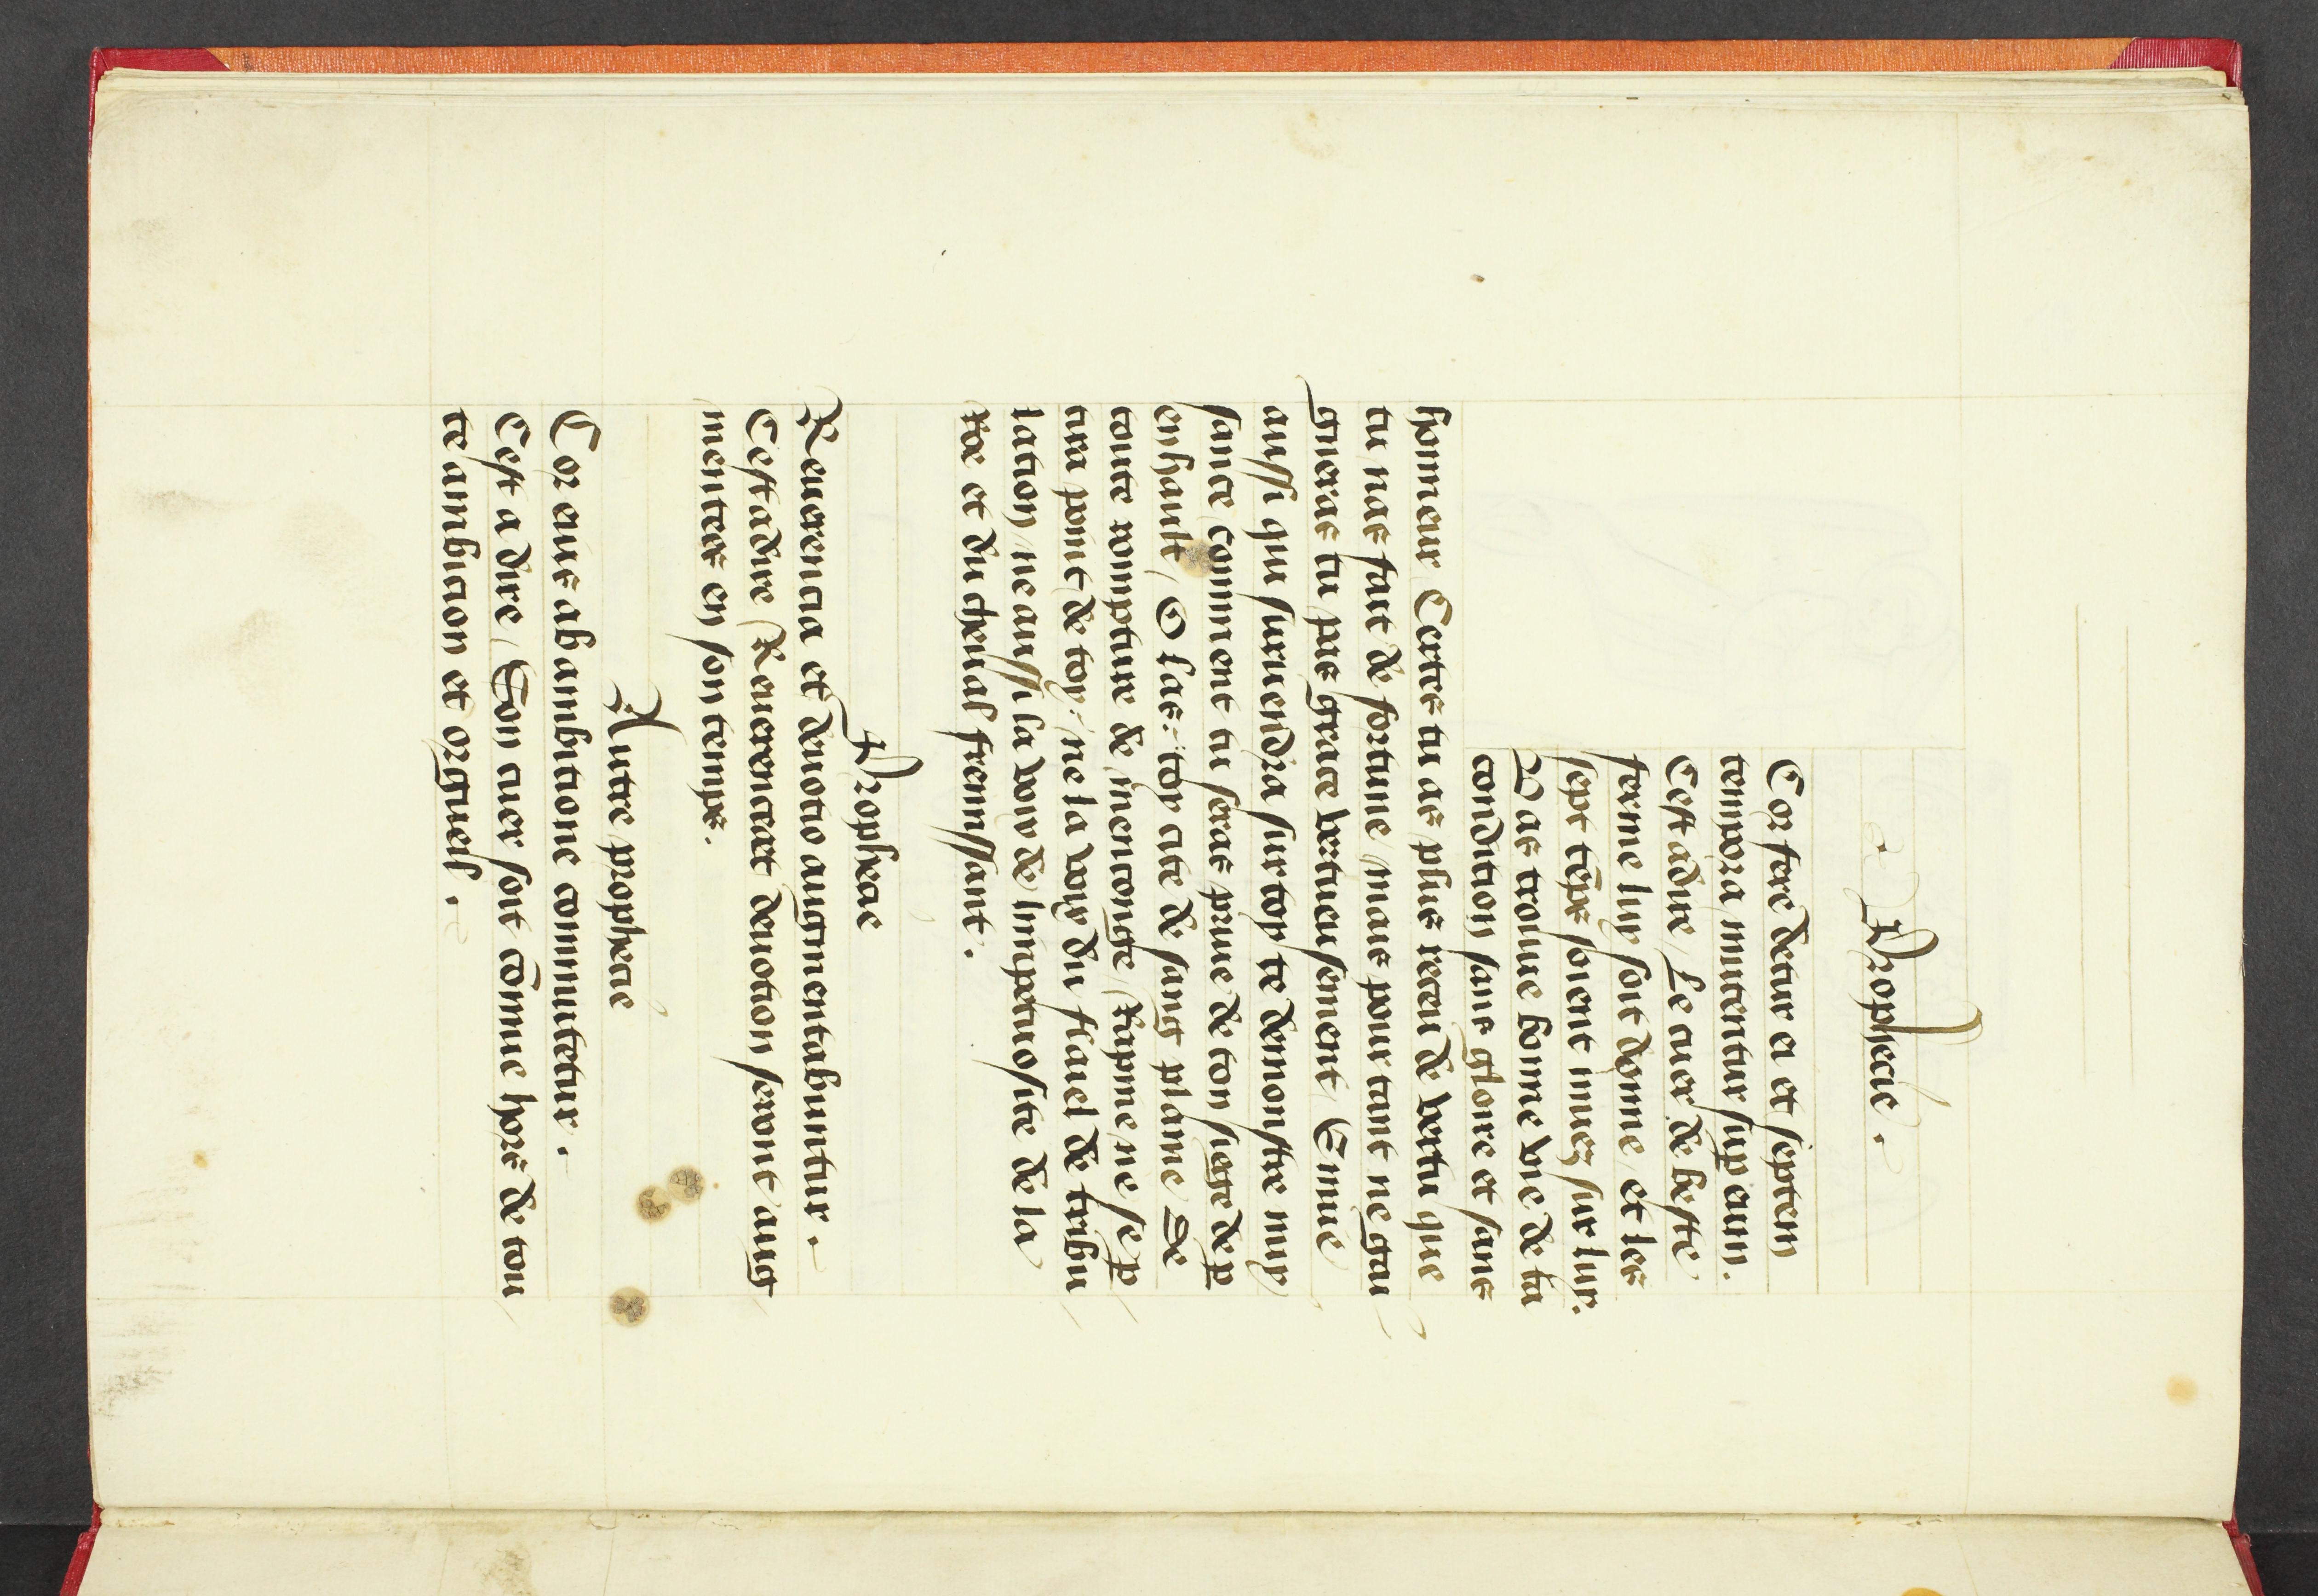 Prophecie.
Cor fere detur ei et septem
tempora mutentur sup eum.
Cest adire / Le cuer de beste
ferme luy soit donne / et les
sept tēps soient muez sur luy.
Las trouue home vne de ta
condition sans gloire et sans
honneur Certes tu as plus receu de vertu que
tu nas fait de fortune / mais pour tant ne gai
gneras tu pas grace vertueusement / Ennuie
aussi qui suruendra sur toy te demonstre muy
sance / comment tu seras priue de ton siege de p
enhault / O las: toy cite de sang plaine / De
toute rompture de mencongte / Rapine ne se p
tira point de toy: ne la voye du flaiel de tribu
lation / ne aussi la voye de limpetuosite de la
roe et du cheual fremissant.
Prophecie
Reuerencia et deuotio augmentabuntur.
Cest adire / Reuerence et deuotion seront aug
mentees en son temps.
Autre prophecie
Cor eius ab ambitione commutetur.
Cest a dire / Son cuer soit cōmue hors de tou
te ambicion et orgueil.